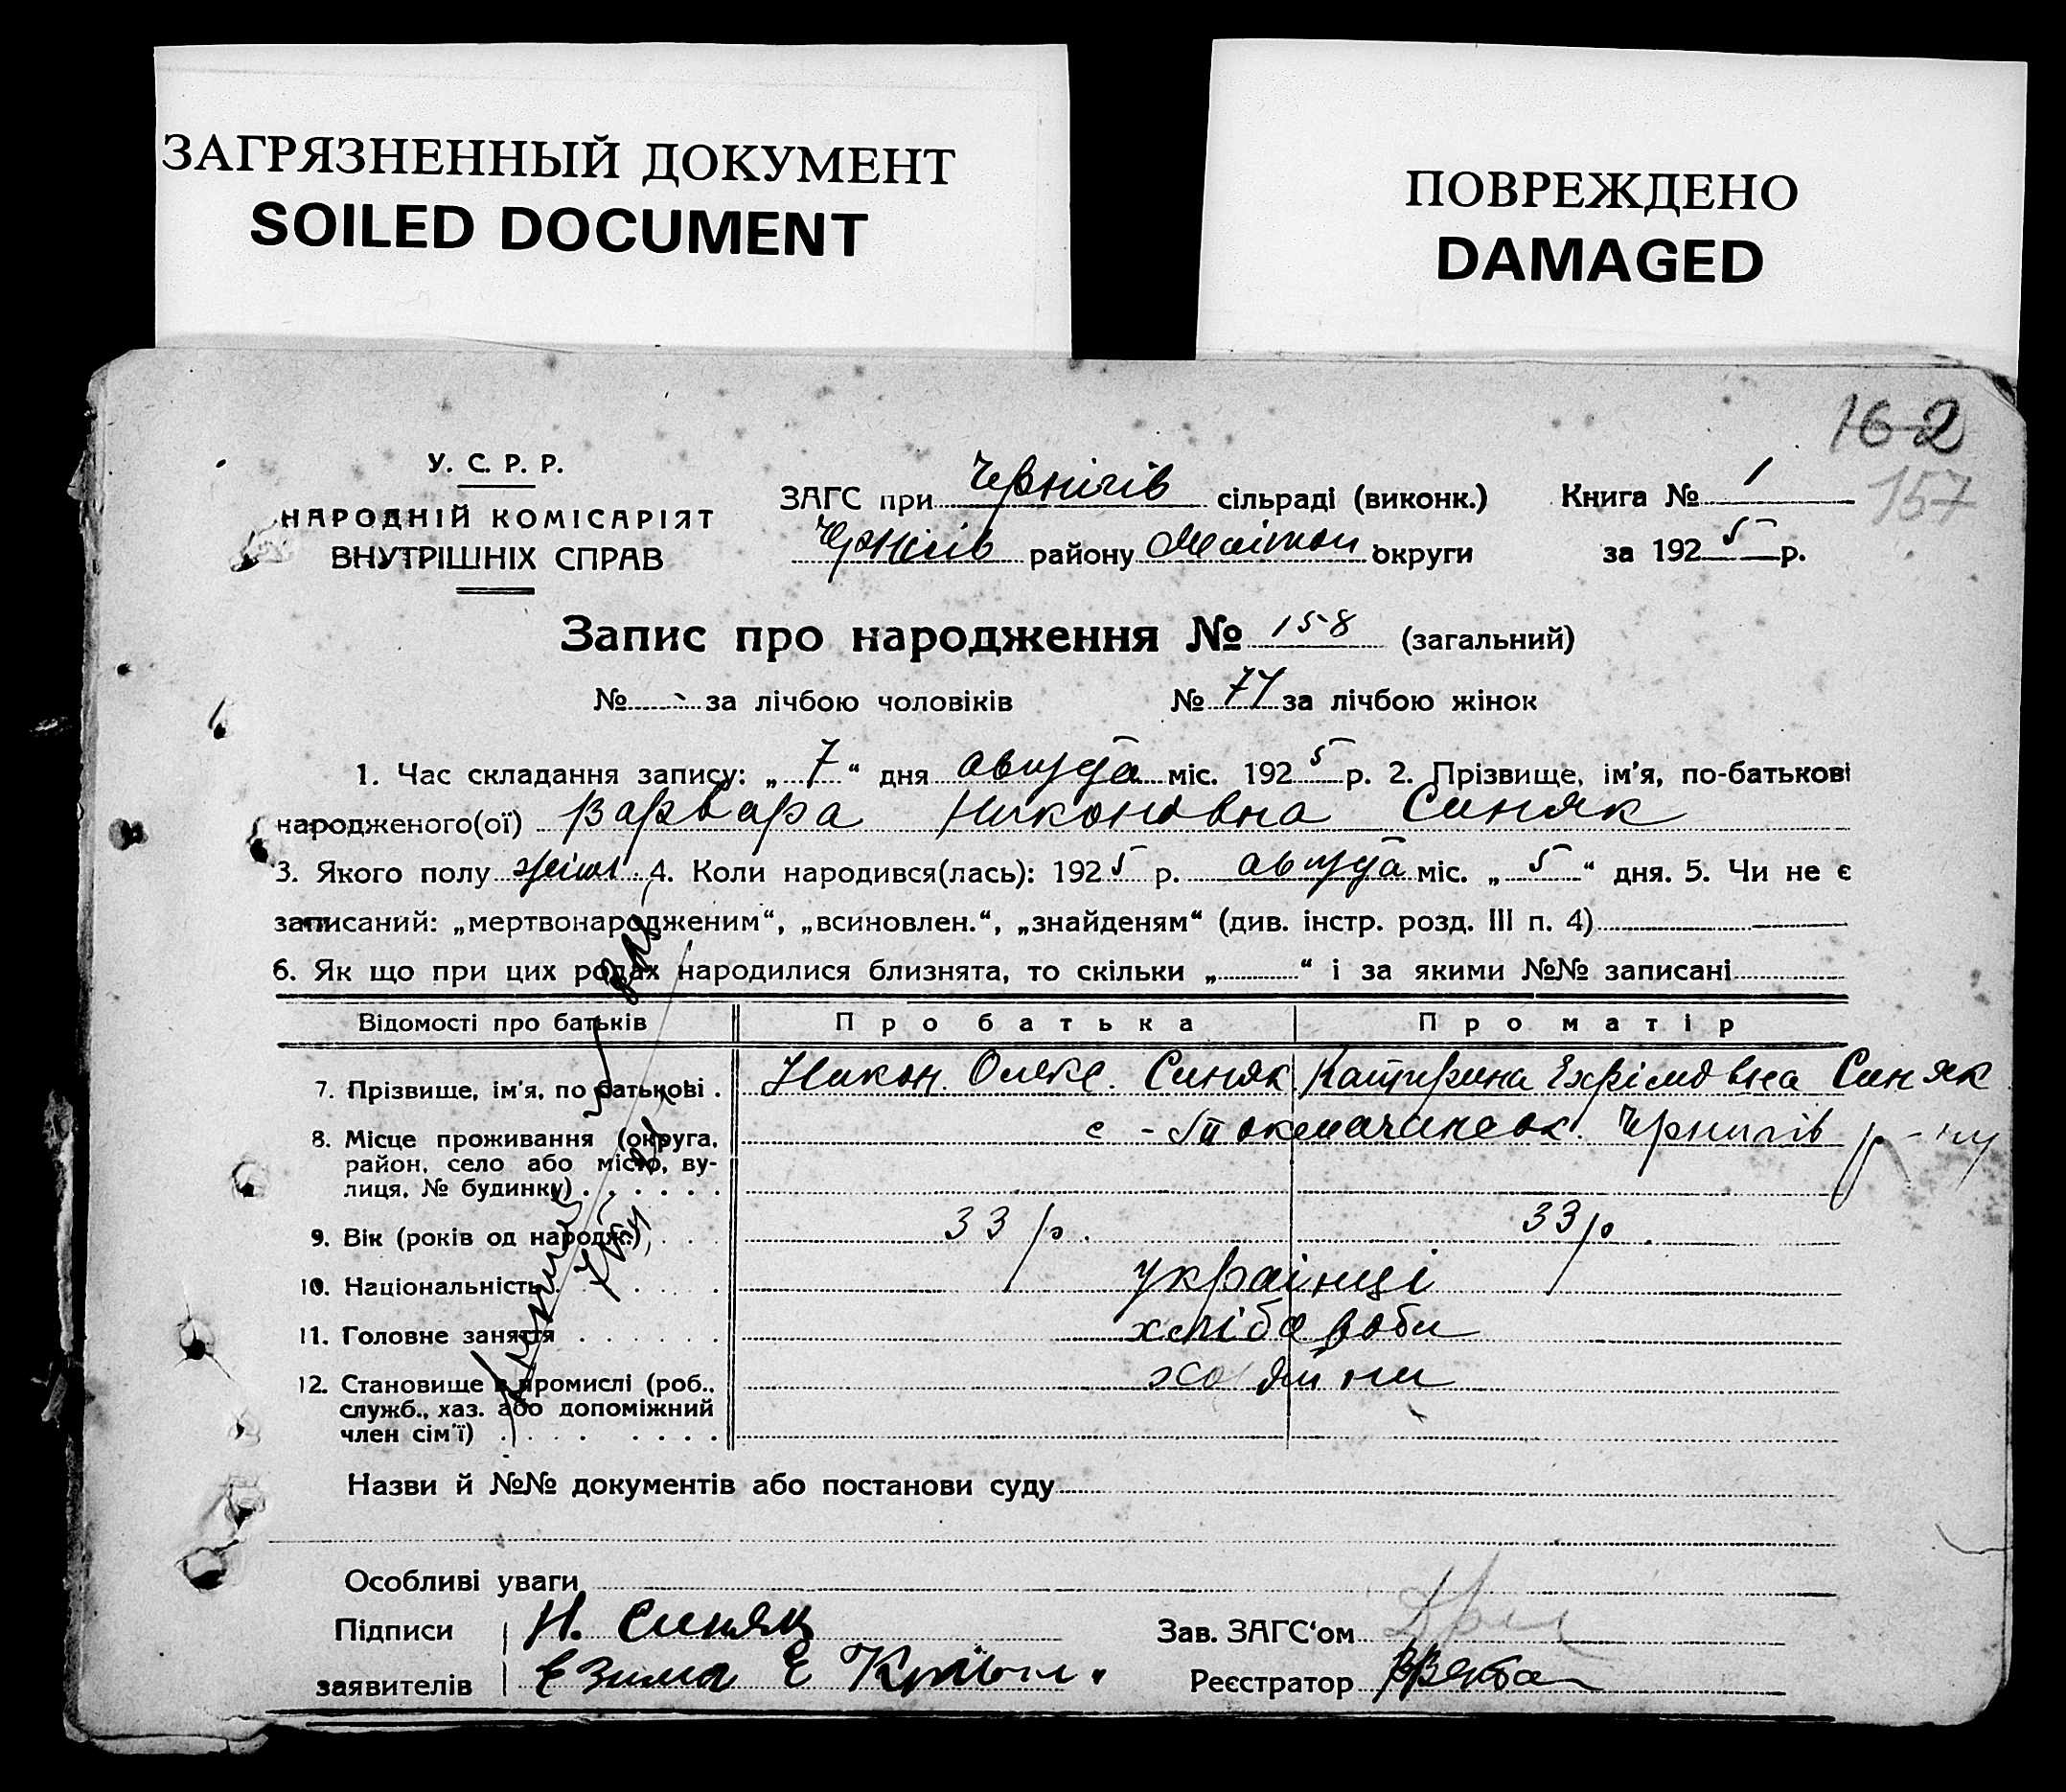 ЗАГРЯЗНЕННЫЙ ДОКУМЕНТ
SOILED DOCUMENT
ПОВРЕЖДЕНО
DAMAGED
162
157
У. С. Р. Р.
НАРОДНІЙ КОМІСАРІЯТ
ВНУТРІШНІХ СПРАВ
ЗАГС при Чернігів сільраді (виконк.) Книга № 1
Черніг​ів району Меліто​п округи за 1925 р.
Запис про народження № 158 (загальний)
№ - за лічбою чоловіків № 74 за лічбою жінок
1. Час складання запису: „7“ дня августа міс. 1925 р. 2. Прізвище, ім'я, по-батькові
народженого(ої) Варвара Никоновна Синяк
3. Якого полу жіноч. 4. Коли народився(лась): 1925 р. августа міс. „5“ дня. 5. Чи не є
записаний: „мертвонародженим“, „всиновлен.“, „знайденям“ (див. інстр. розд. III п. 4)
6. Як що при цих родах народилися близнята, то скільки „ “ і за якими №№ записані
Відомості про батьків Про батька Про матір
7. Прізвище, ім'я, по батькові . Никон Олекс. Синяк Катирина Ехрімовна Синяк
8. Місце проживання (округа, с-Токмачинсок. Чернигів р-ну
район, село або місто, ву-
лиця, № будинку) . . . . . .
9. Вік (років од народж.) . . 33 р. 33 р.
10. Національність . . . . українці
11. Головне заняття . . . . . . хлібороби
12. Становище в промислі (роб., хозяїни
служб., хаз. або допоміжний
член сім'ї) . . . . . . . .
Назви й №№ документів або постанови суду
Особливі уваги
Підписи Н. Синяк Зав. ЗАГС‘ом
заявителів Е Зима Е Реєстратор